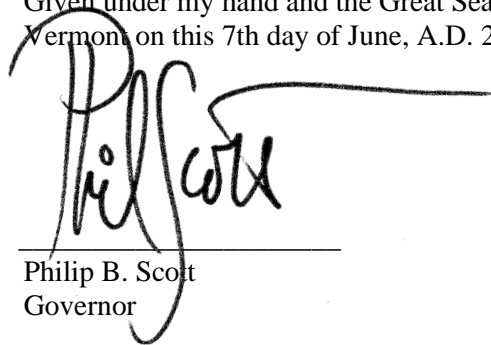 Given under my hand and the Great Sea
Vermont on this 7th day of June, A.D. 2
Phil Scott
Philip B. Scott
Governor